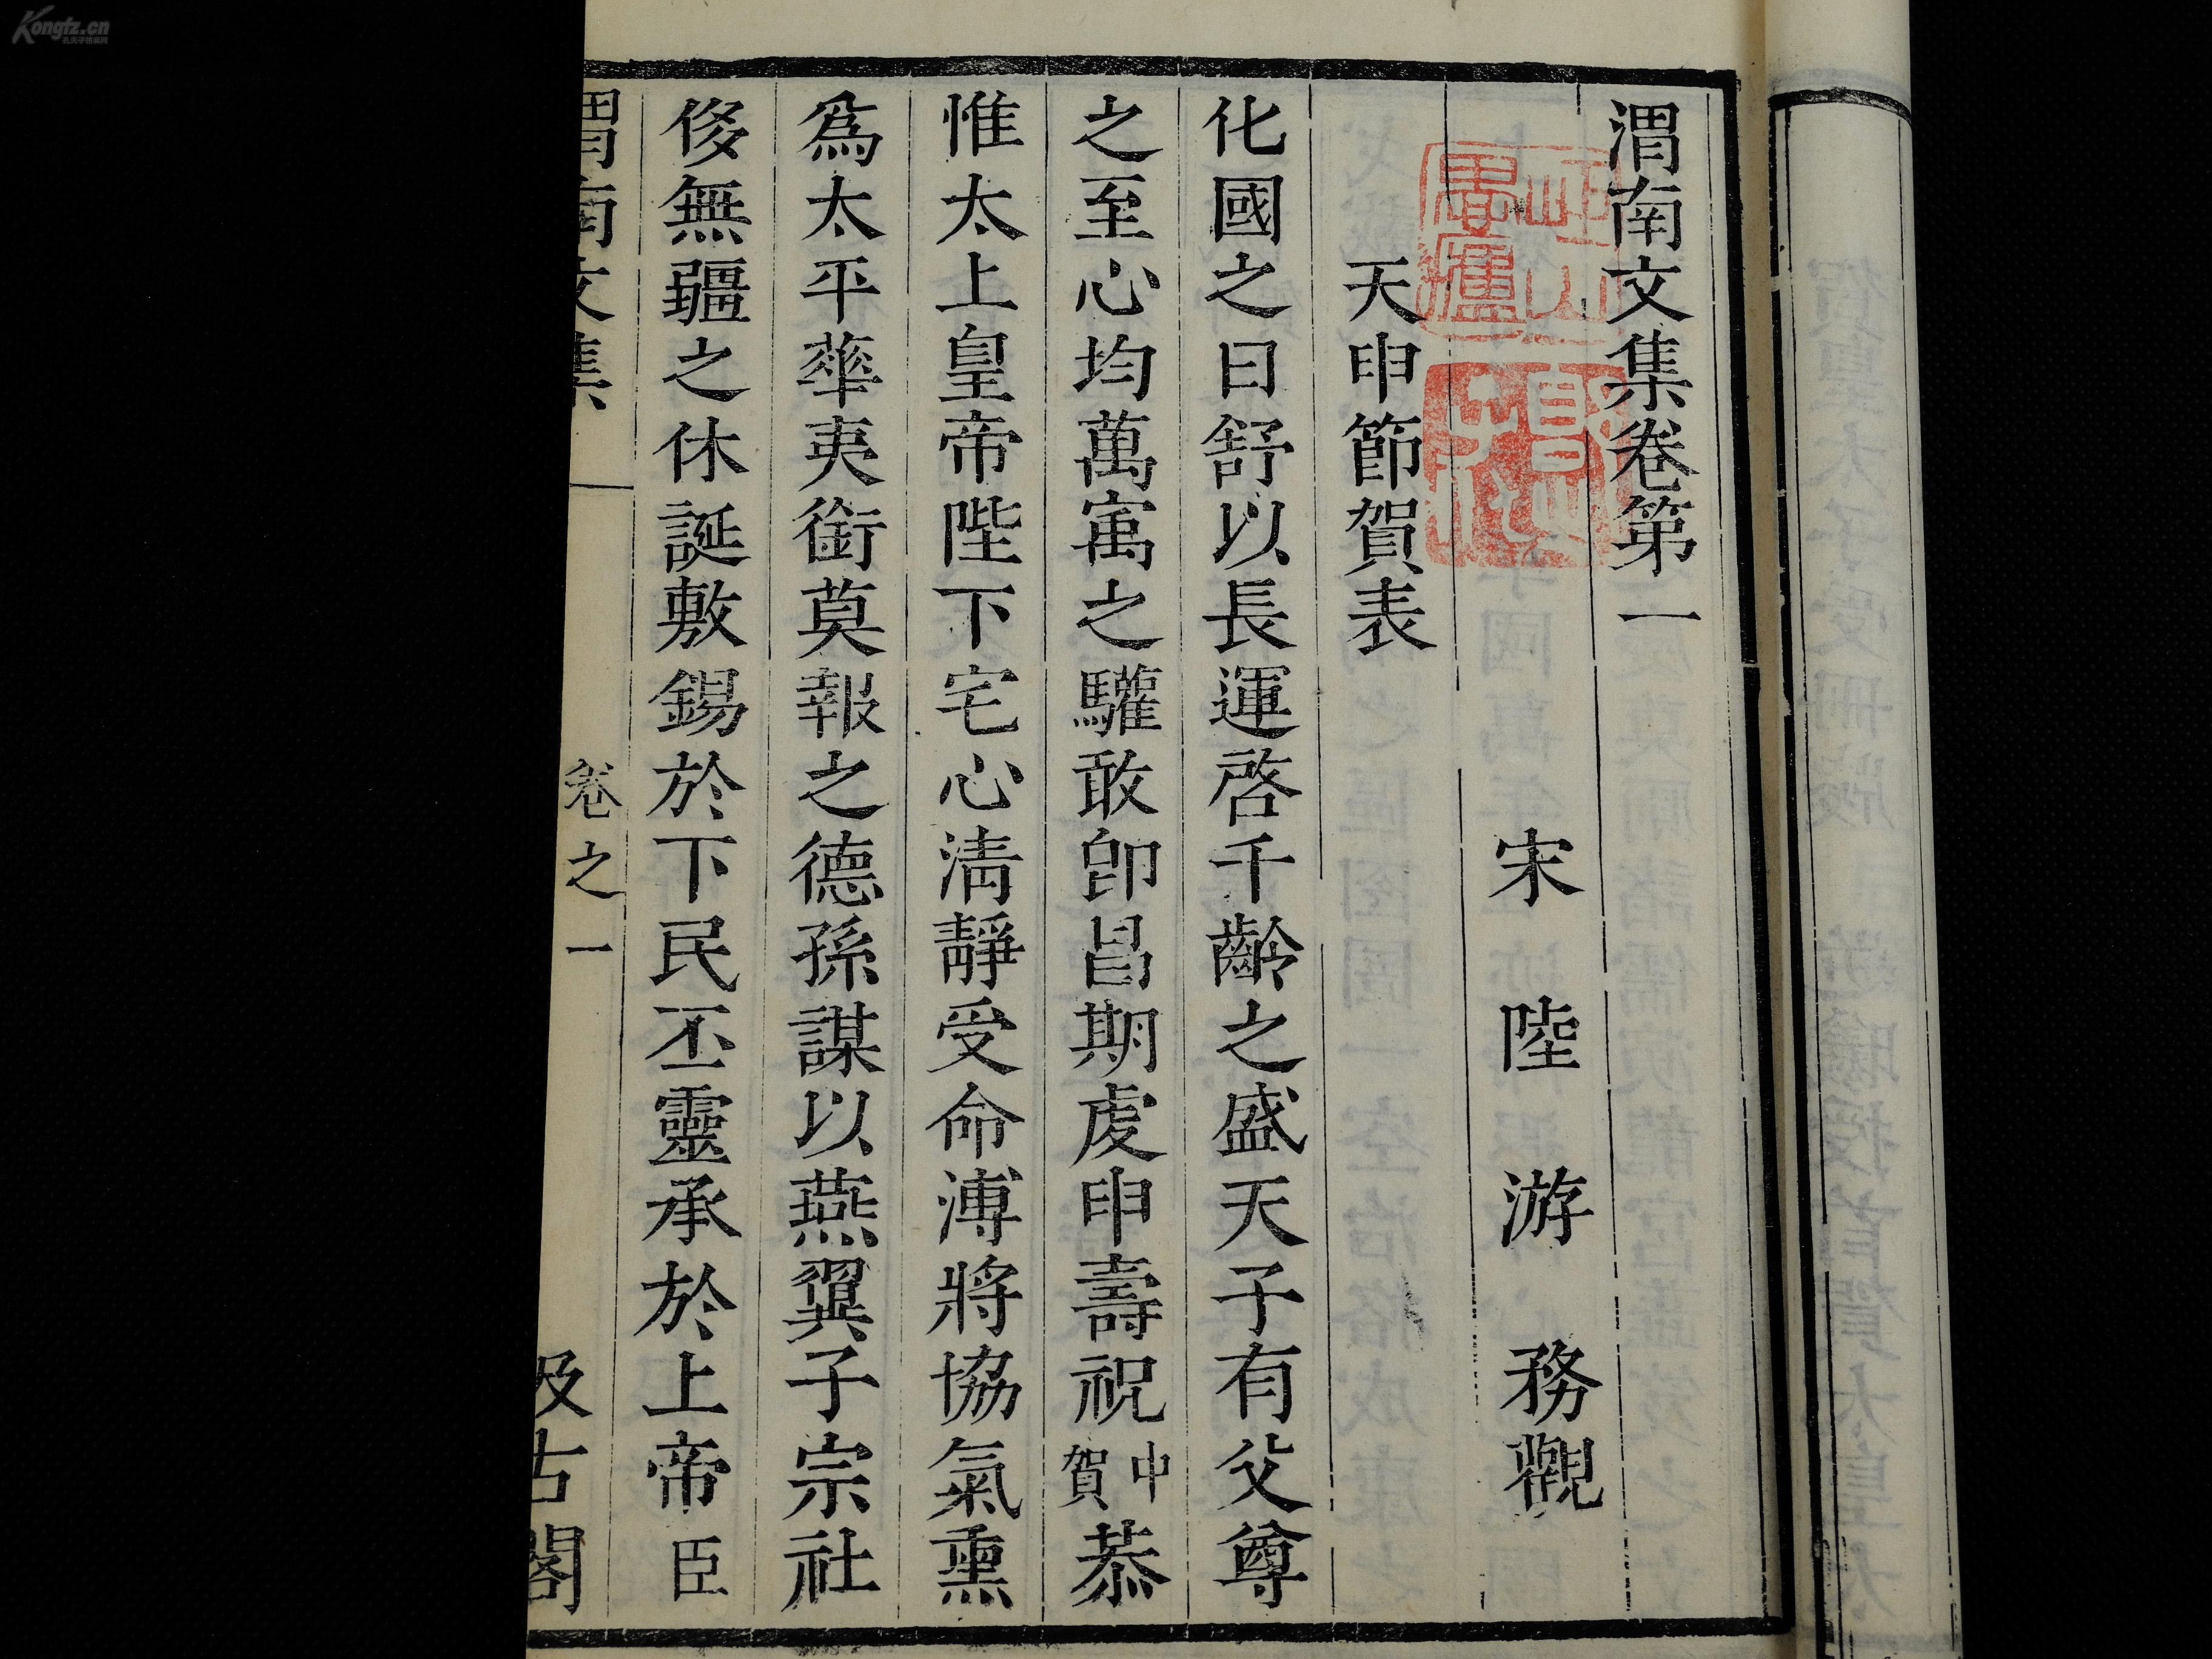 渭南文集卷第一
宋陸游務觀
天申節賀表
化國之日舒以長運啓千齡之盛天子有父尊
之至心均萬㝢之驩敢卽昌期虔申壽祝中賀恭
惟太上皇帝陛下宅心淸靜受命溥將協氣熏
爲太平華夷銜莫報之德孫謀以燕翼子宗社
侈無疆之休誕敷錫於下民丕靈承於上帝臣
渭南文集
卷之一
汲古閣
Kongfz.cn